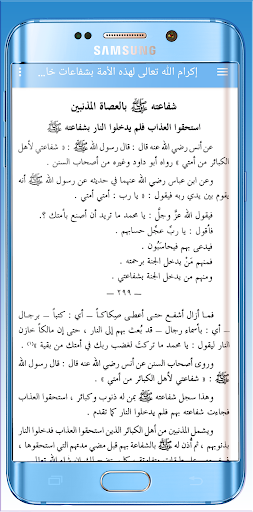 SAMSUNG
إكرام الله تعالى لهذه الأمة بشفاعات خا...
شفاعته ﷺ بالعصاة المذنبين
استحقوا العذاب فلم يدخلوا النار بشفاعته ﷺ
عن أنس رضي الله عنه قال : قال رسول الله ﷺ : « شفاعتي لأهل
الكبائر من أمتي » رواه أبو داود وغيره من أصحاب السنن .
وعن ابن عباس رضي الله عنهما في حديثه عن رسول الله ﷺ أنه
يقوم بين يدي ربه فيقول : « يا رب : أمتي أمتي .
فيقول الله عزَّ وجلَّ : يا محمد ما تريد أن أصنع بأمتك ؟.
فأقول : يا ربِّ عجِّل حسابهم .
فيدعى بهم فيحاسَبُون .
فمنهم مَنْ يدخل الجنة برحمته .
ومنهم من يدخل الجنة بشفاعتي .
— ٢٩٩ —
فما أزال أشفع حتى أعطى صِكاكاً — أي : كتباً — برجال
— أي : بأسماء رجال — قد بُعث بهم إلى النار ، حتى إن مالكاً خازن
النار ليقول : يا محمد ما تركتَ لغضب ربك في أمتك من بقية »(١) .
وروى أصحاب السنن عن أنس رضي الله عنه قال : قال رسول الله
ﷺ : « شفاعتي لأهل الكبائر من أمتي » .
وهذا سجل شفاعته ﷺ بمن له ذنوب وكبائر ، استحقوا العذاب
فجاءت شفاعته بهم فلم يدخلوا النار كما تقدم .
ويشمل المذنبين من أهل الكبائر الذين استحقوا العذاب ودخلوا النار
بذنوبهم ، ثم أُذن له ﷺ بالشفاعة بهم قبل مضي مدتهم التي استحقوها ،